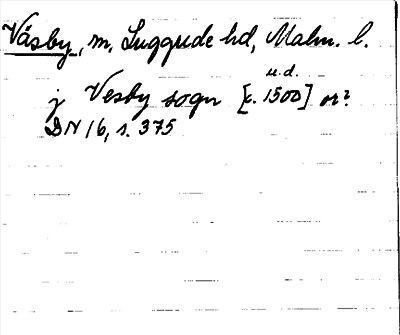 Väsby, m, Luggude hd, Malm. l.
u.d.
j Vesby sogn [c. 1500] or?
DN 16, s. 375